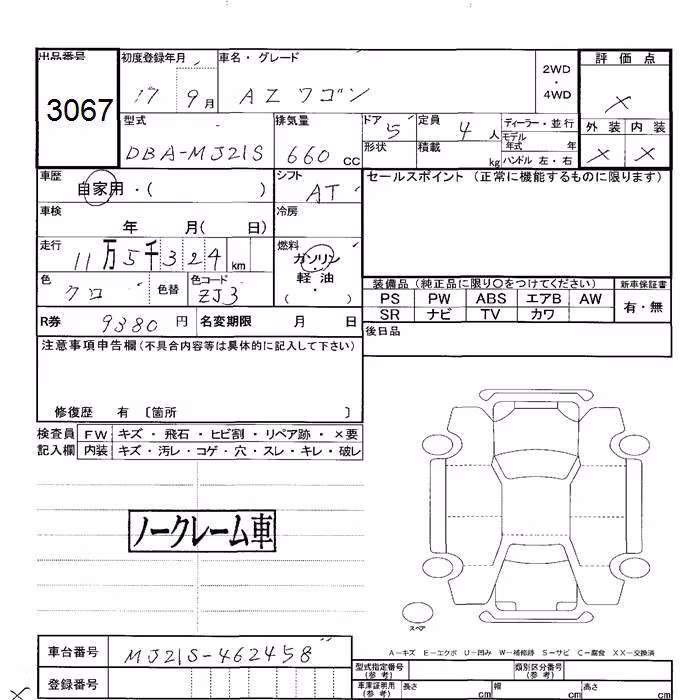 出品番号 初度登録年月 車名・グレード 2WD・4WD 評価点
3067 17 9月 AZワゴン ×
型式 排気量 ドア 5 定員 4人 ディーラー・並行 外装 内装
DBA-MJ21S 660cc 形状 積載 kg モデル年式 年 ハンドル 左・右 × ×
車歴 自家用・( ) シフト AT セールスポイント (正常に機能するものに限ります)
車検 年 月( 日) 冷房
走行 11万5千324km 燃料 ガソリン・軽油 ( )
色 クロ 色替 色コード ZJ3 装備品 (純正品に限り○をつけてください) 新車保証書
PS PW ABS エアB AW 有・無
SR ナビ TV カワ
R券 9380円 名変期限 月 日 後日品
注意事項申告欄(不具合内容等は具体的に記入して下さい)
修復歴 有 〔箇所 〕
検査員 FW キズ・飛石・ヒビ割・リペア跡・×要
記入欄 内装 キズ・汚レ・コゲ・穴・スレ・キレ・破レ
ノークレーム車
スペア
A-キズ E-エクボ U-凹み W-補修跡 S-サビ C-腐食 XX-交換済
車台番号 MJ21S-462458 型式指定番号(参考) 類別区分番号(参考)
登録番号 車庫証明用(参考) 長さ cm 幅 cm 高さ cm
×